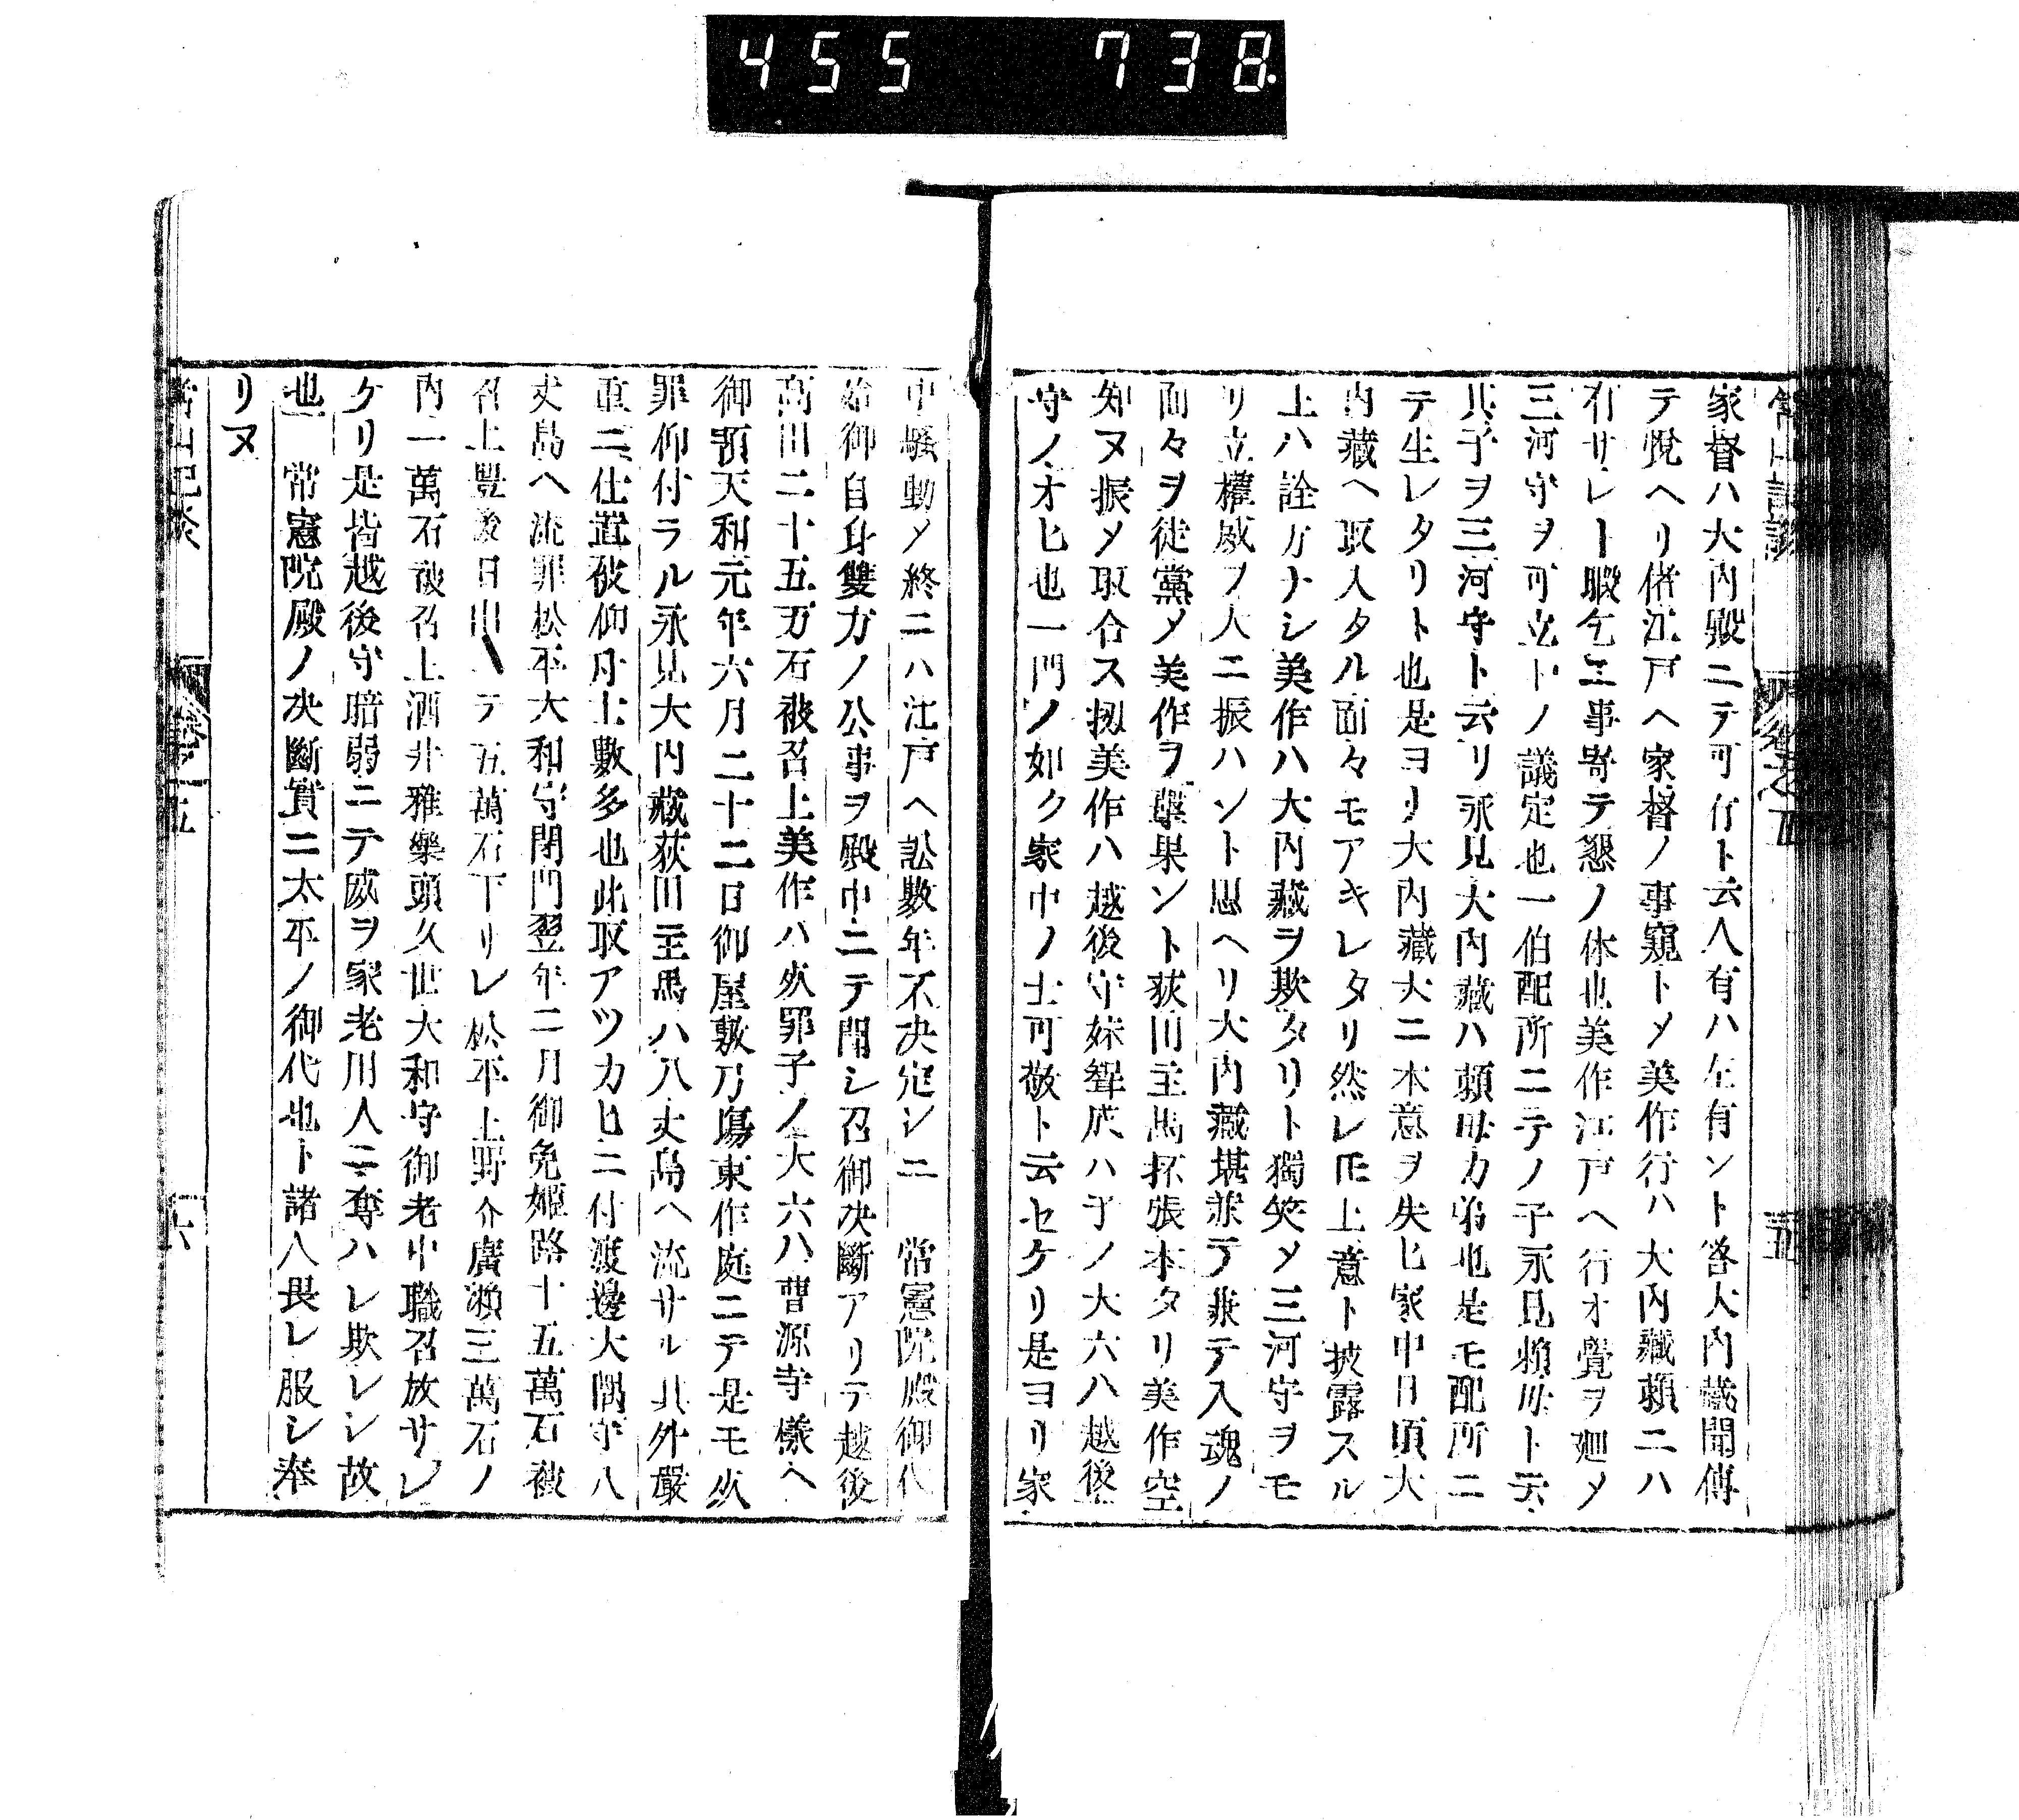 455 738
家督ハ大内殿ニテ可有ト云人有ハ左有ント答大内藏聞傳
テ悅ヘリ偖江戸ヘ家督ノ事窺トメ美作行ハ大内藏賴ニハ
有サレト暇乞ニ事寄テ懇ノ体也美作江戸ヘ行才覺ヲ廻メ
三河守ヲ可立トノ議定也一伯配所ニテノ子永見賴母ト云
其子ヲ三河守ト云リ永見大内藏ハ賴母カ弟也是モ配所ニ
テ生レタリト也是ヨリ大内藏大ニ本意ヲ失ヒ家中日頃大
内藏ヘ取入タル面々モアキレタリ然レ𪜈上意ト披露スル
上ハ詮方ナシ美作ハ大内藏ヲ欺タリト獨笑メ三河守ヲモ
リ立權威ヲ大ニ振ハント思ヘリ大内藏堪兼テ兼テ入魂ノ
面々ヲ徒黨メ美作ヲ擊果ント荻田主馬抔張本タリ美作空
知ヌ振メ取合ス扨美作ハ越後守妹聟成ハ子ノ大六ハ越後
守ノオヒ也一門ノ如ク家中ノ士可敬ト云セケリ是ヨリ家
中騷動メ終ニハ江戸ヘ訟數年不决定シニ　常憲院殿御代
始御自身雙方ノ公事ヲ殿中ニテ聞シ召御决斷アリテ越後
高田二十五万石被召上美作ハ死罪子ノ大六ハ曹源寺樣ヘ
御預天和元年六月二十二日御屋敷乃塲東作庭ニテ是モ死
罪仰付ラル永見大内藏荻田主馬ハ八丈島ヘ流サル其外嚴
重ニ仕置被仰付士數多也此取アツカヒニ付渡邊大隅守八
丈島ヘ流罪松平大和守閉門翌年二月御免姬路十五萬石被
召上豐後日田ヘテ五萬石下リレ松平上野介廣瀨三萬石ノ
内一萬石被召上酒井雅樂頭久世大和守御老中職召放サレ
ケリ是皆越後守暗弱ニテ威ヲ家老用人ニ奪ハレ欺レシ故
也　常憲院殿ノ决斷實ニ太平ノ御代也ト諸人畏レ服シ奉
リヌ